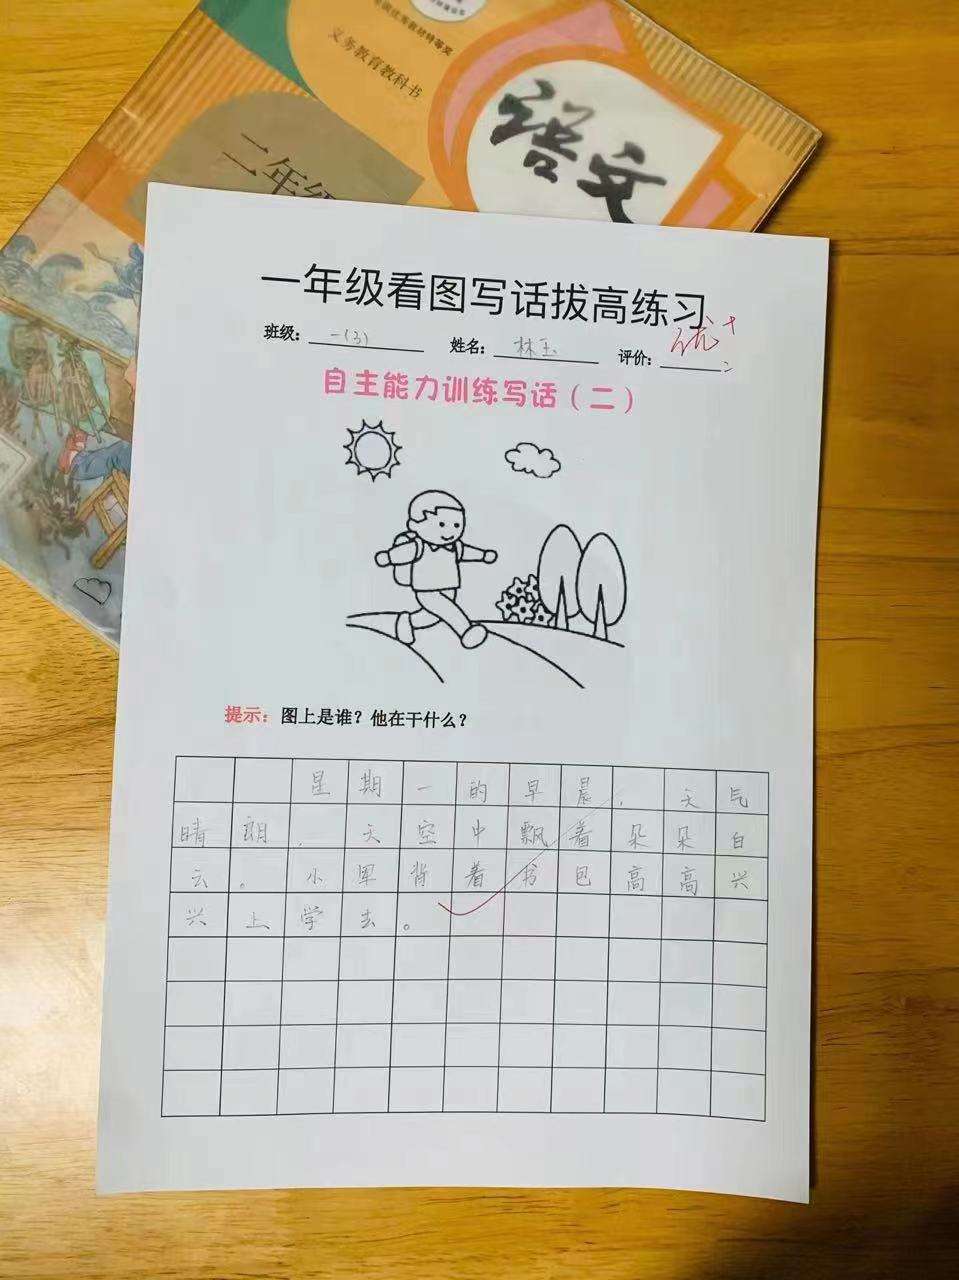 全国优秀教材特等奖
义务教育教科书
语文
二年级
一年级看图写话拔高练习
班级：一(3) 姓名：林玉 评价：优+
自主能力训练写话（二）
提示：图上是谁？他在干什么？
星期一的早晨，天气
晴朗，天空中飘着朵朵白
云。小军背着书包高高兴
兴上学去。